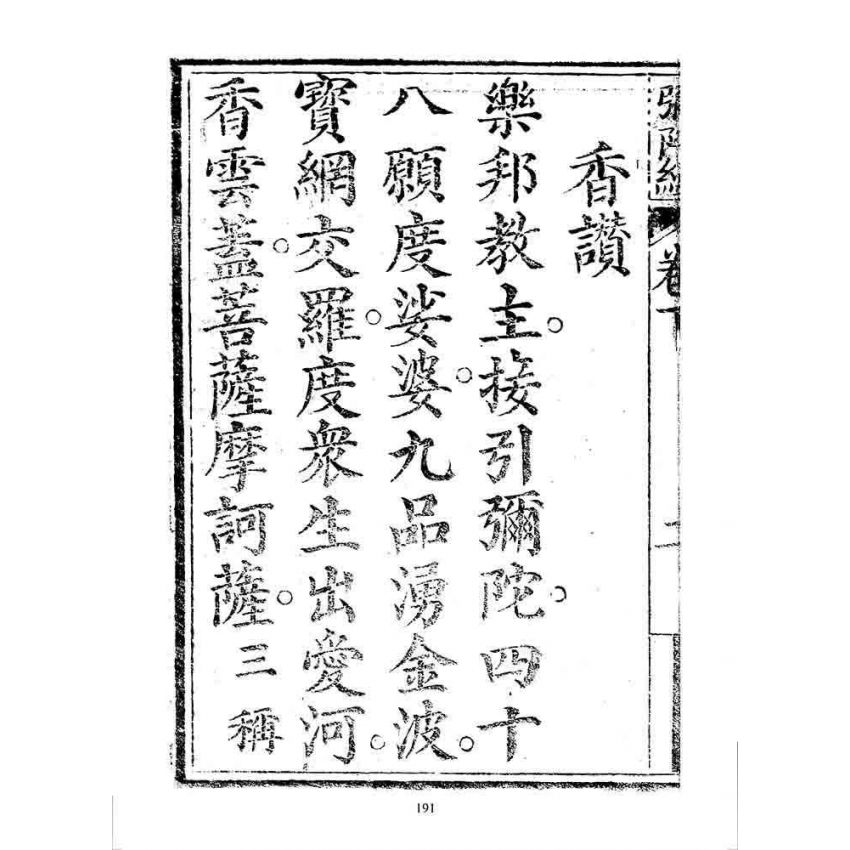 彌陀經 卷下
二
香讚
樂邦教主。接引彌陀。四十
八願度娑婆。九品湧金波。
寶網交羅。度眾生出愛河。
香雲蓋。菩薩摩訶薩。三稱
191